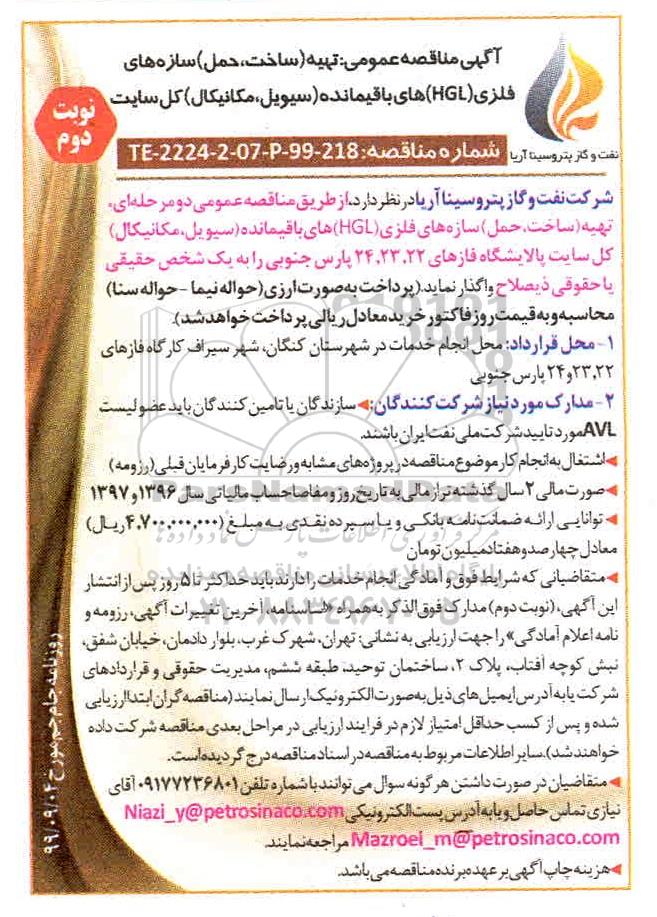 آگهی مناقصه عمومی: تهیه (ساخت، حمل) سازه های
فلزی (HGL) های باقیمانده (سیویل، مکانیکال) کل سایت
نوبت
دوم
شماره مناقصه: TE-2224-2-07-P-99-218
نفت و گاز پتروسینا آریا
شرکت نفت و گاز پتروسینا آریا در نظر دارد، از طریق مناقصه عمومی دو مرحله ای،
تهیه (ساخت، حمل) سازه های فلزی (HGL) های باقیمانده (سیویل، مکانیکال)
کل سایت پالایشگاه فازهای ۲۴،۲۳،۲۲ پارس جنوبی را به یک شخص حقیقی
یا حقوقی ذیصلاح واگذار نماید. (پرداخت به صورت ارزی (حواله نیما - حواله سنا)
محاسبه و به قیمت روز فاکتور خرید معادل ریالی پرداخت خواهد شد).
۱- محل قرارداد: محل انجام خدمات در شهرستان کنگان، شهر سیراف کارگاه فازهای
۲۳،۲۲ و ۲۴ پارس جنوبی
۲- مدارک مورد نیاز شرکت کنندگان: ◄ سازندگان یا تامین کنندگان باید عضو لیست
AVL مورد تایید شرکت ملی نفت ایران باشند.
◄ اشتغال به انجام کار موضوع مناقصه در پروژه های مشابه و رضایت کارفرمایان قبلی (رزومه)
◄ صورت مالی ۲ سال گذشته تراز مالی به تاریخ روز و مفاصا حساب مالیاتی سال ۱۳۹۶ و ۱۳۹۷
◄ توانایی ارائه ضمانت نامه بانکی و یا سپرده نقدی به مبلغ (۴،۷۰۰،۰۰۰،۰۰۰ ریال)
معادل چهارصد و هفتاد میلیون تومان
◄ متقاضیانی که شرایط فوق و آمادگی انجام خدمات را دارند باید حداکثر تا ۵ روز پس از انتشار
این آگهی، (نوبت دوم) مدارک فوق الذکر به همراه «اساسنامه، آخرین تغییرات آگهی، رزومه و
نامه اعلام آمادگی» را جهت ارزیابی به نشانی: تهران، شهرک غرب، بلوار دادمان، خیابان شفق،
نبش کوچه آفتاب، پلاک ۲، ساختمان توحید، طبقه ششم، مدیریت حقوقی و قراردادهای
شرکت یا به آدرس ایمیل های ذیل به صورت الکترونیک ارسال نمایند (مناقصه گران ابتدا ارزیابی
شده و پس از کسب حداقل امتیاز لازم در فرایند ارزیابی در مراحل بعدی مناقصه شرکت داده
خواهند شد). سایر اطلاعات مربوط به مناقصه در اسناد مناقصه درج گردیده است.
◄ متقاضیان در صورت داشتن هرگونه سوال می توانند با شماره تلفن ۰۹۱۷۷۲۳۶۸۰۱ آقای
نیازی تماس حاصل و یا به آدرس پست الکترونیکی Niazi_y@petrosinaco.com
Mazroei_m@petrosinaco.com مراجعه نمایند.
◄ هزینه چاپ آگهی بر عهده برنده مناقصه می باشد.
روزنامه جام جم مورخ ۹۹/۰۹/۰۴